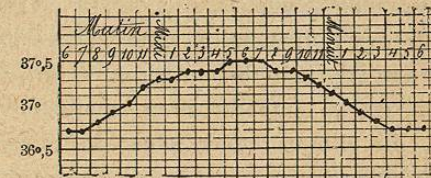 Matin Midi Minuit
6 7 8 9 10 11 1 2 3 4 5 6 7 8 9 10 11 1 2 3 4 5 6
37°,5
37°
36°,5